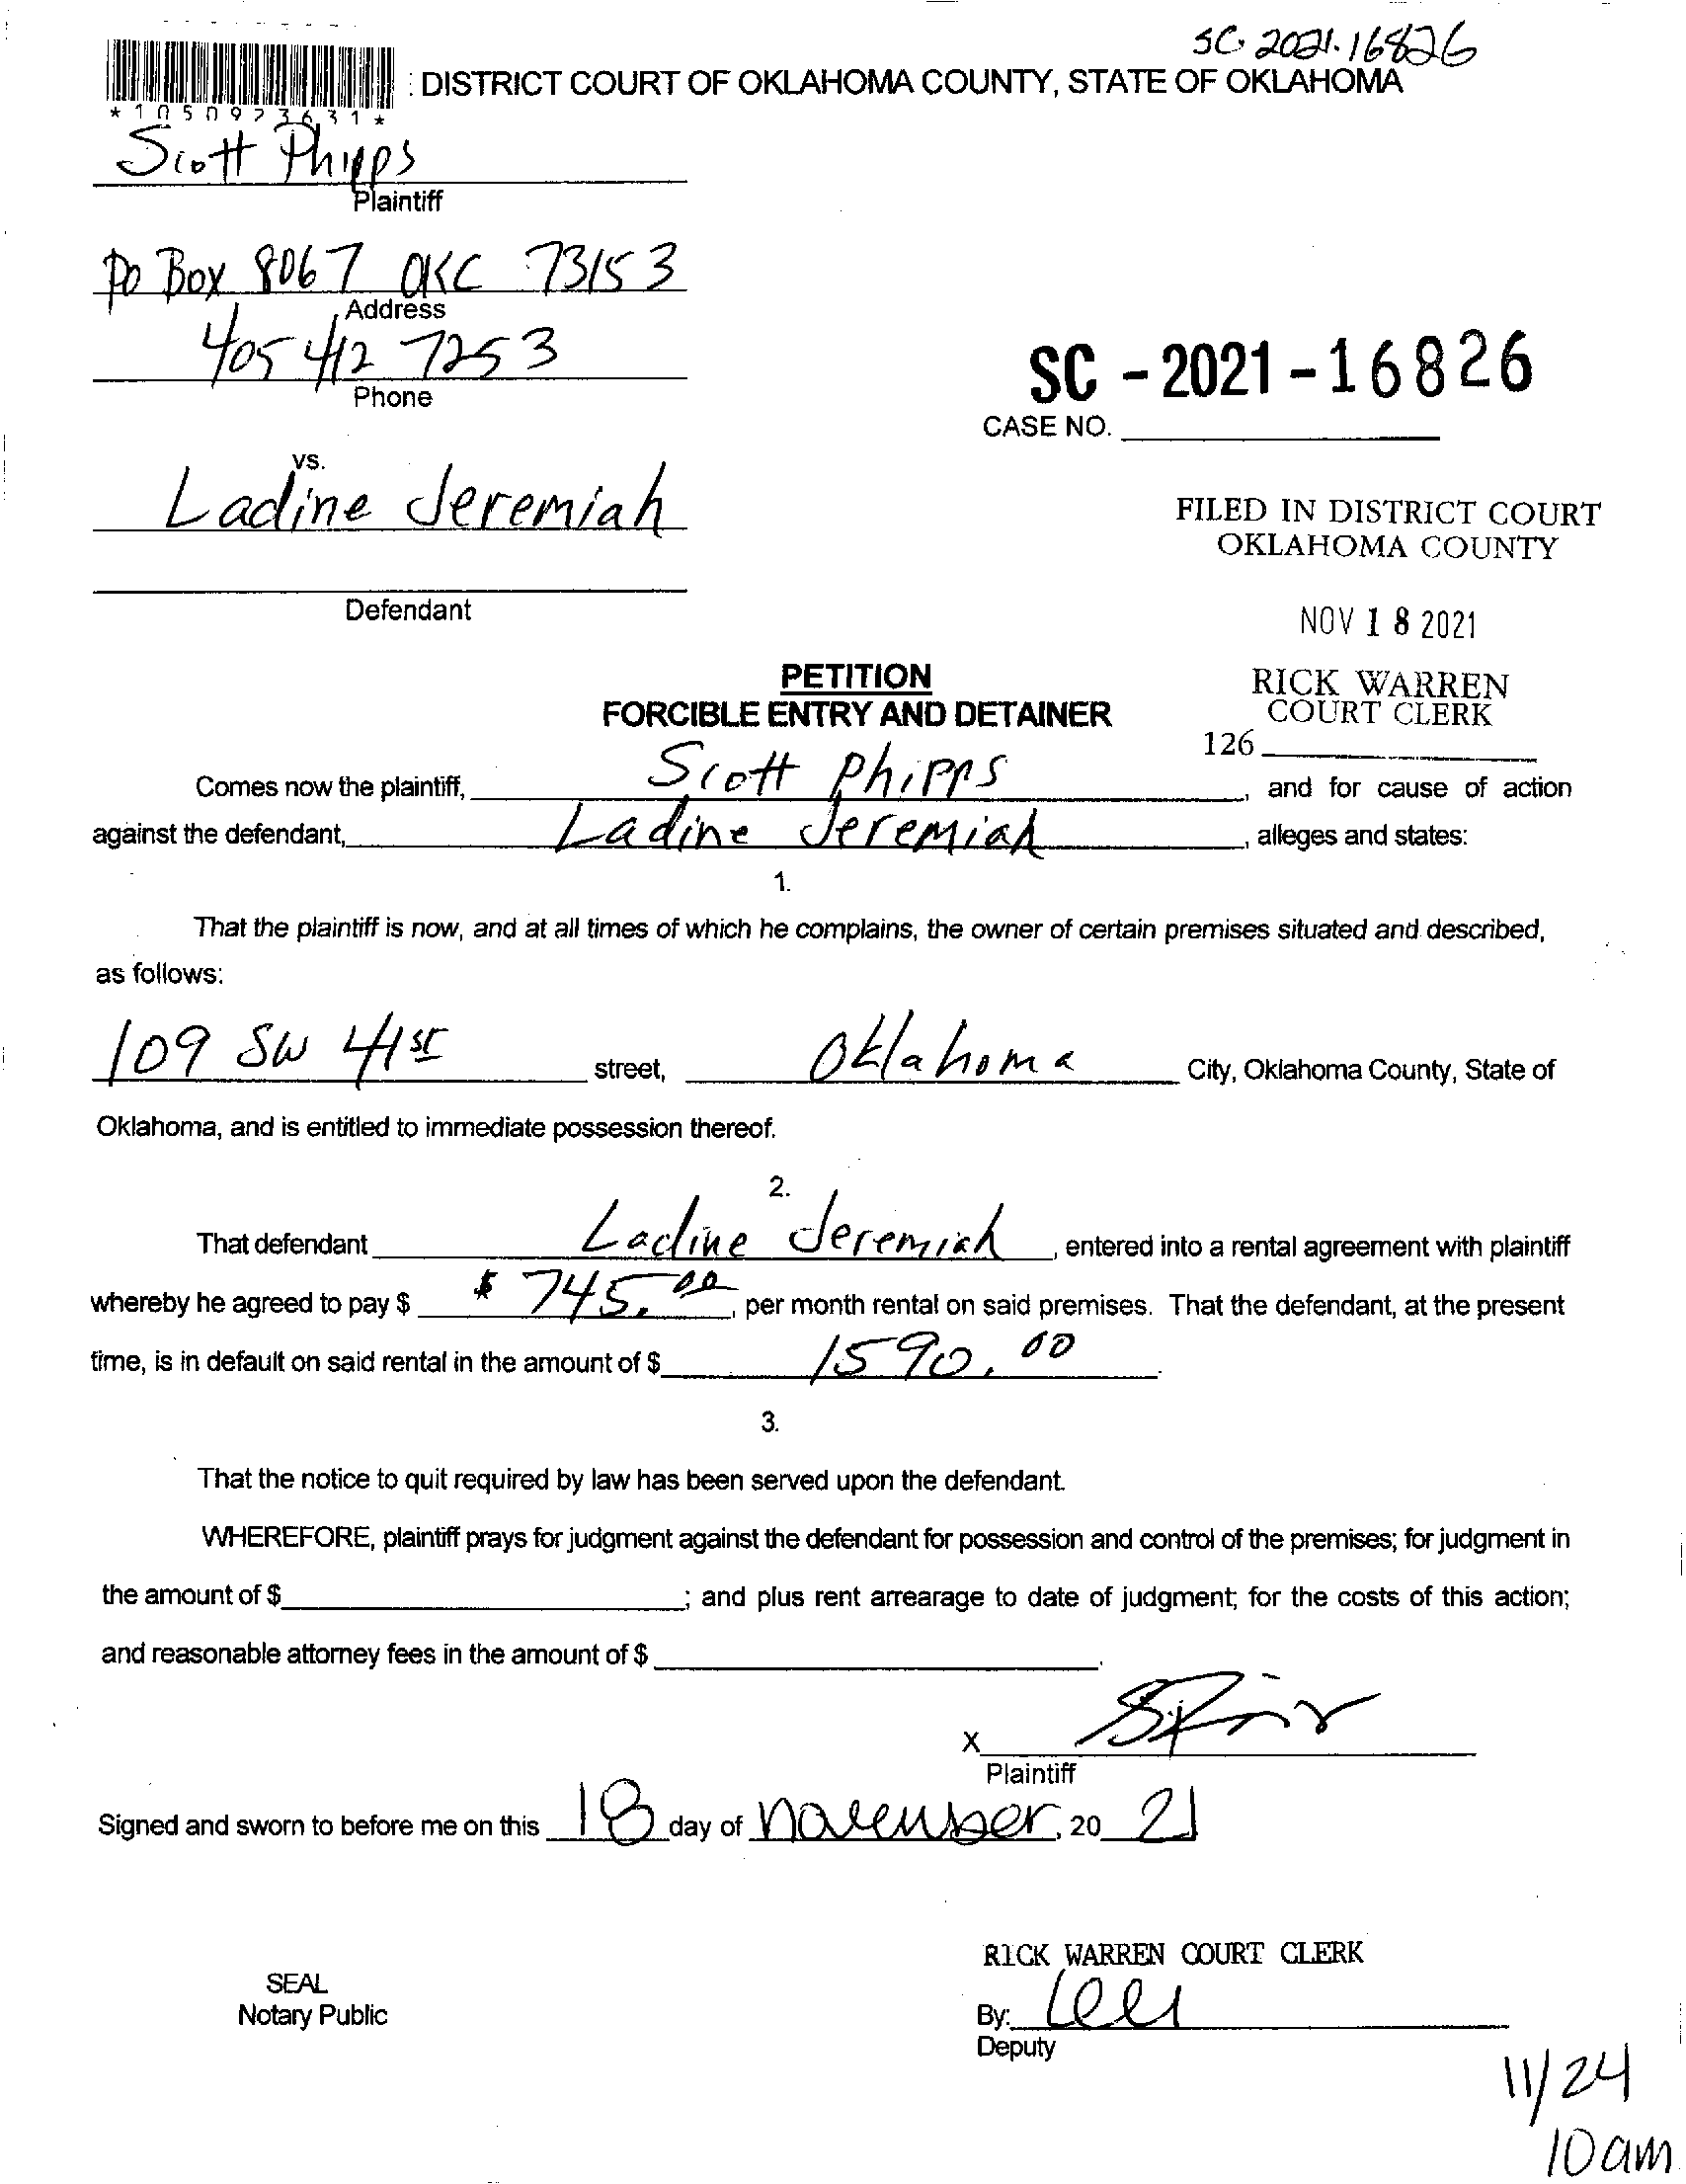 SC-2021-16826
: DISTRICT COURT OF OKLAHOMA COUNTY, STATE OF OKLAHOMA
* 1 0 5 0 9 2 3 6 3 1 *
Scott Phipps
Plaintiff
PO Box 8067 OKC 73153
Address
405 412 7253
Phone
SC - 2021 - 16826
CASE NO.
vs.
Ladine Jeremiah
FILED IN DISTRICT COURT
OKLAHOMA COUNTY
Defendant
NOV 18 2021
PETITION
FORCIBLE ENTRY AND DETAINER
RICK WARREN
COURT CLERK
126
Comes now the plaintiff, Scott Phipps, and for cause of action
against the defendant, Ladine Jeremiah, alleges and states:
1.
That the plaintiff is now, and at all times of which he complains, the owner of certain premises situated and described,
as follows:
109 SW 41st street, Oklahoma City, Oklahoma County, State of
Oklahoma, and is entitled to immediate possession thereof.
2.
That defendant Ladine Jeremiah, entered into a rental agreement with plaintiff
whereby he agreed to pay $ $ 745.00, per month rental on said premises. That the defendant, at the present
time, is in default on said rental in the amount of $ 1590.00.
3.
That the notice to quit required by law has been served upon the defendant.
WHEREFORE, plaintiff prays for judgment against the defendant for possession and control of the premises; for judgment in
the amount of $ ; and plus rent arrearage to date of judgment; for the costs of this action;
and reasonable attorney fees in the amount of $ .
X
Plaintiff
Signed and sworn to before me on this 18 day of november, 20 21
RICK WARREN COURT CLERK
SEAL
Notary Public
By:
Deputy
11/24
10am